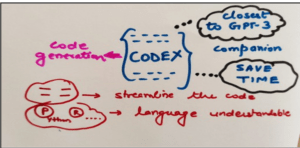 closest
to GPT-3
code
generation
CODEX
companion
SAVE
TIME
streamline the code
P
ython
R
language understandable